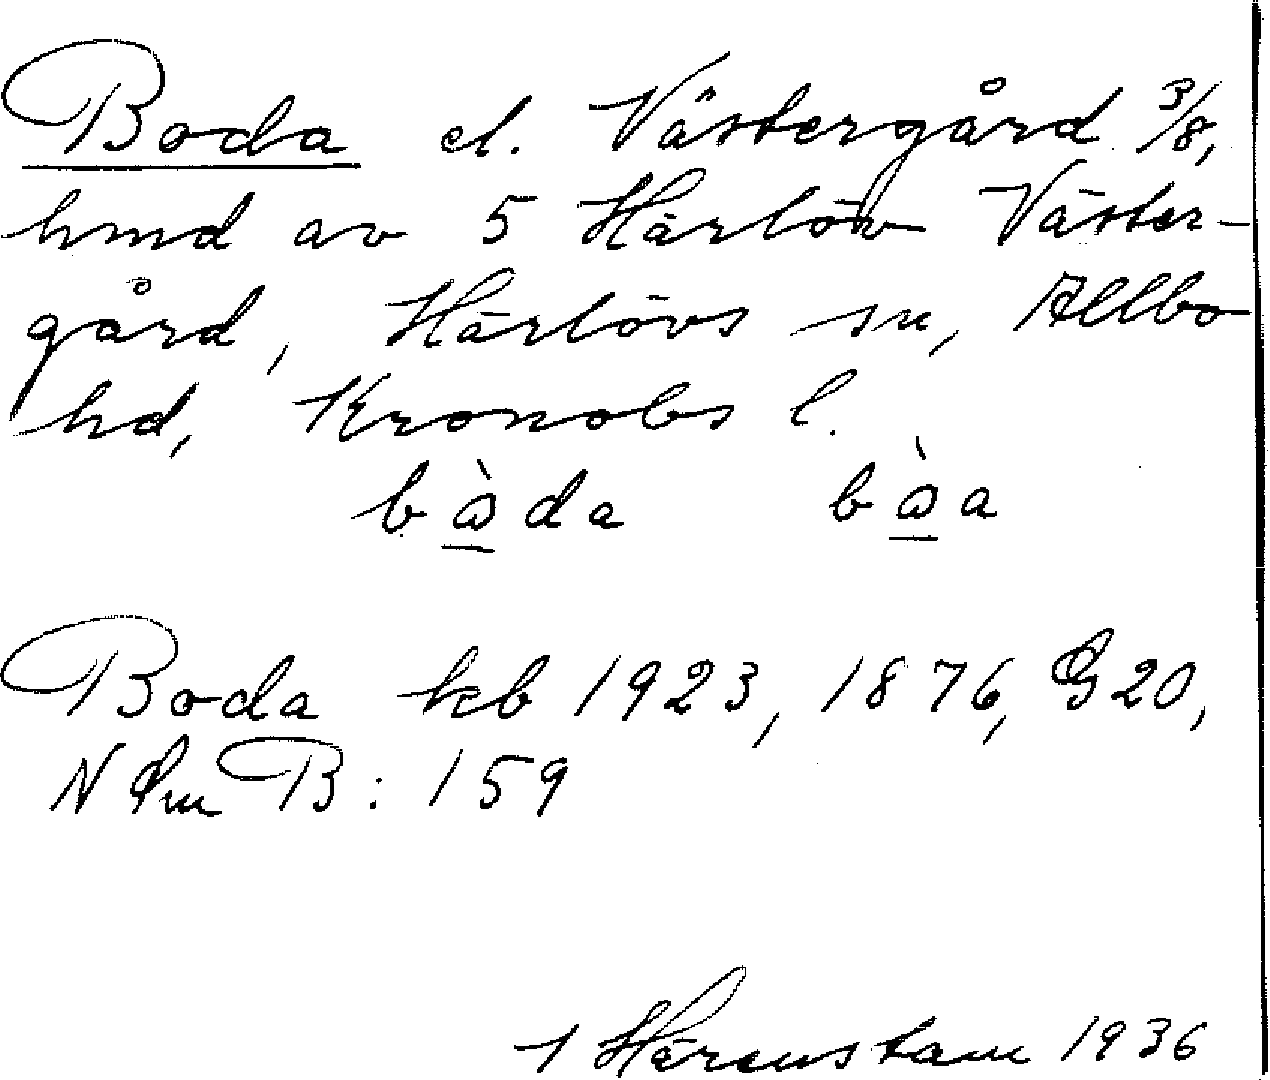 Boda el. Västergård 3/8,
hmd av 5 Härlöv Väster-
gård, Härlövs sn, Allbo
hd, Kronobs l.
bàda bàa
Boda kb 1923, 1876, G 20,
N Sm B: 159
1936